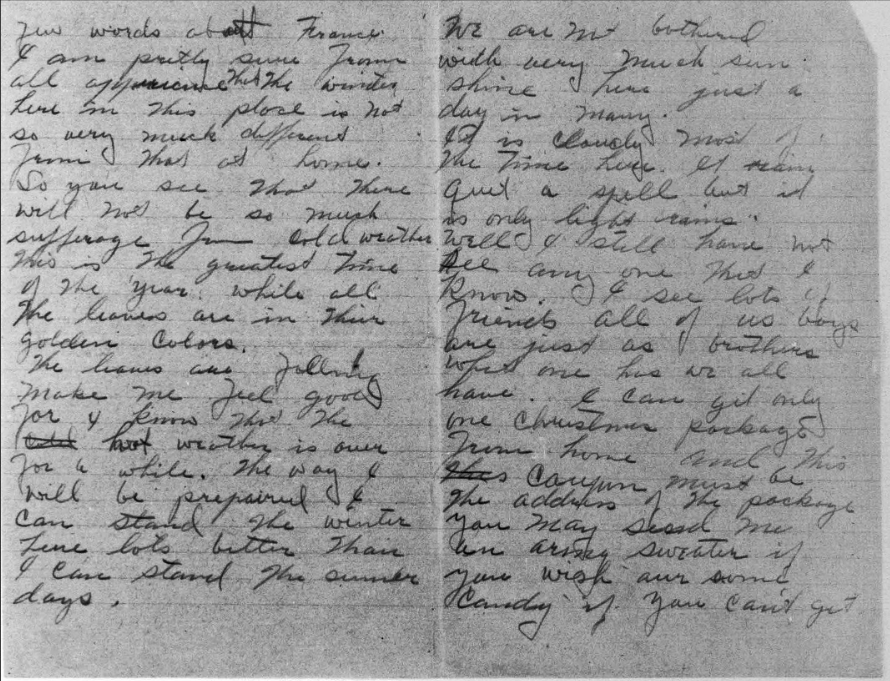 few words about France.
I am pretty sure from
all apperience that the winter
here in this place is not
so very much different
from that at home.
So you see that there
will not be so much
sufferage from cold weather
this is the greatest time
of the year. while all
the leaves are in their
golden colors.
The leaves are falling
make me feel good
for I know that the
cold hot weather is over
for a while. The way I
will be prepaired I
can stand the winter
here lots better than
I can stand the summer
days.
We are not bothered
with very much sun
shine here just a
day in many.
It is cloudy most of
the time here. It rains
quit a spell but it
is only light rains.
Well I still have not
see any one that I
know. I see lots of
friends all of us boys
are just as brothers
what one has we all
have. I can get only
one Christmas package
from home and this
coupon must be
the address of the package
you may send me
an army sweater if
you wish our some
candy if you can't get